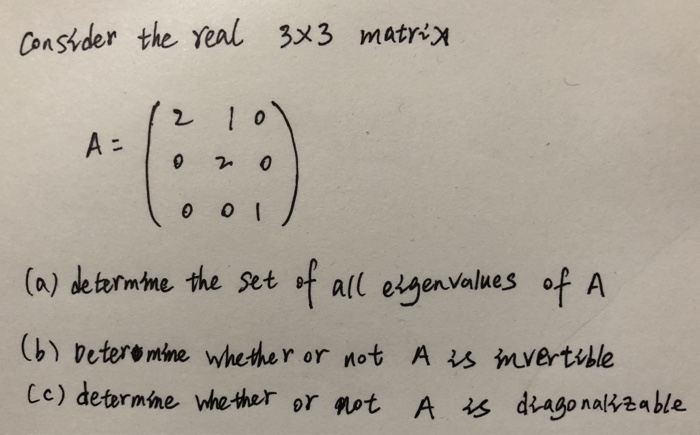 Consider the real 3x3 matrix
A = ( 2 1 0
0 2 0
0 0 1 )
(a) determine the set of all eigenvalues of A
(b) Determine whether or not A is invertible
(c) determine whether or not A is diagonalizable